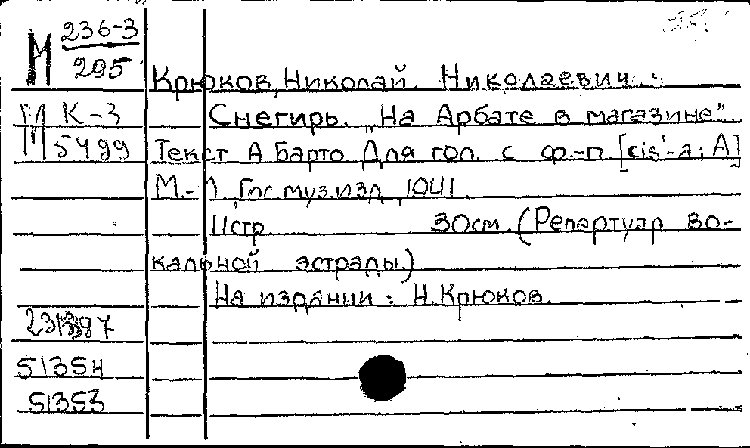 М 236-3
205
Крюков, Николай Николаевич.
М К-3
Снегирь. „На Арбате в магазине"
5499
Текст А Барто Для гол. с ф-п. [cis'-a; A]
М.-Л Гос. муз. изд, 1941.
11стр 30см. (Репертуар во-
кальной эстрады)
На издании: Н. Крюков.
51354
51353